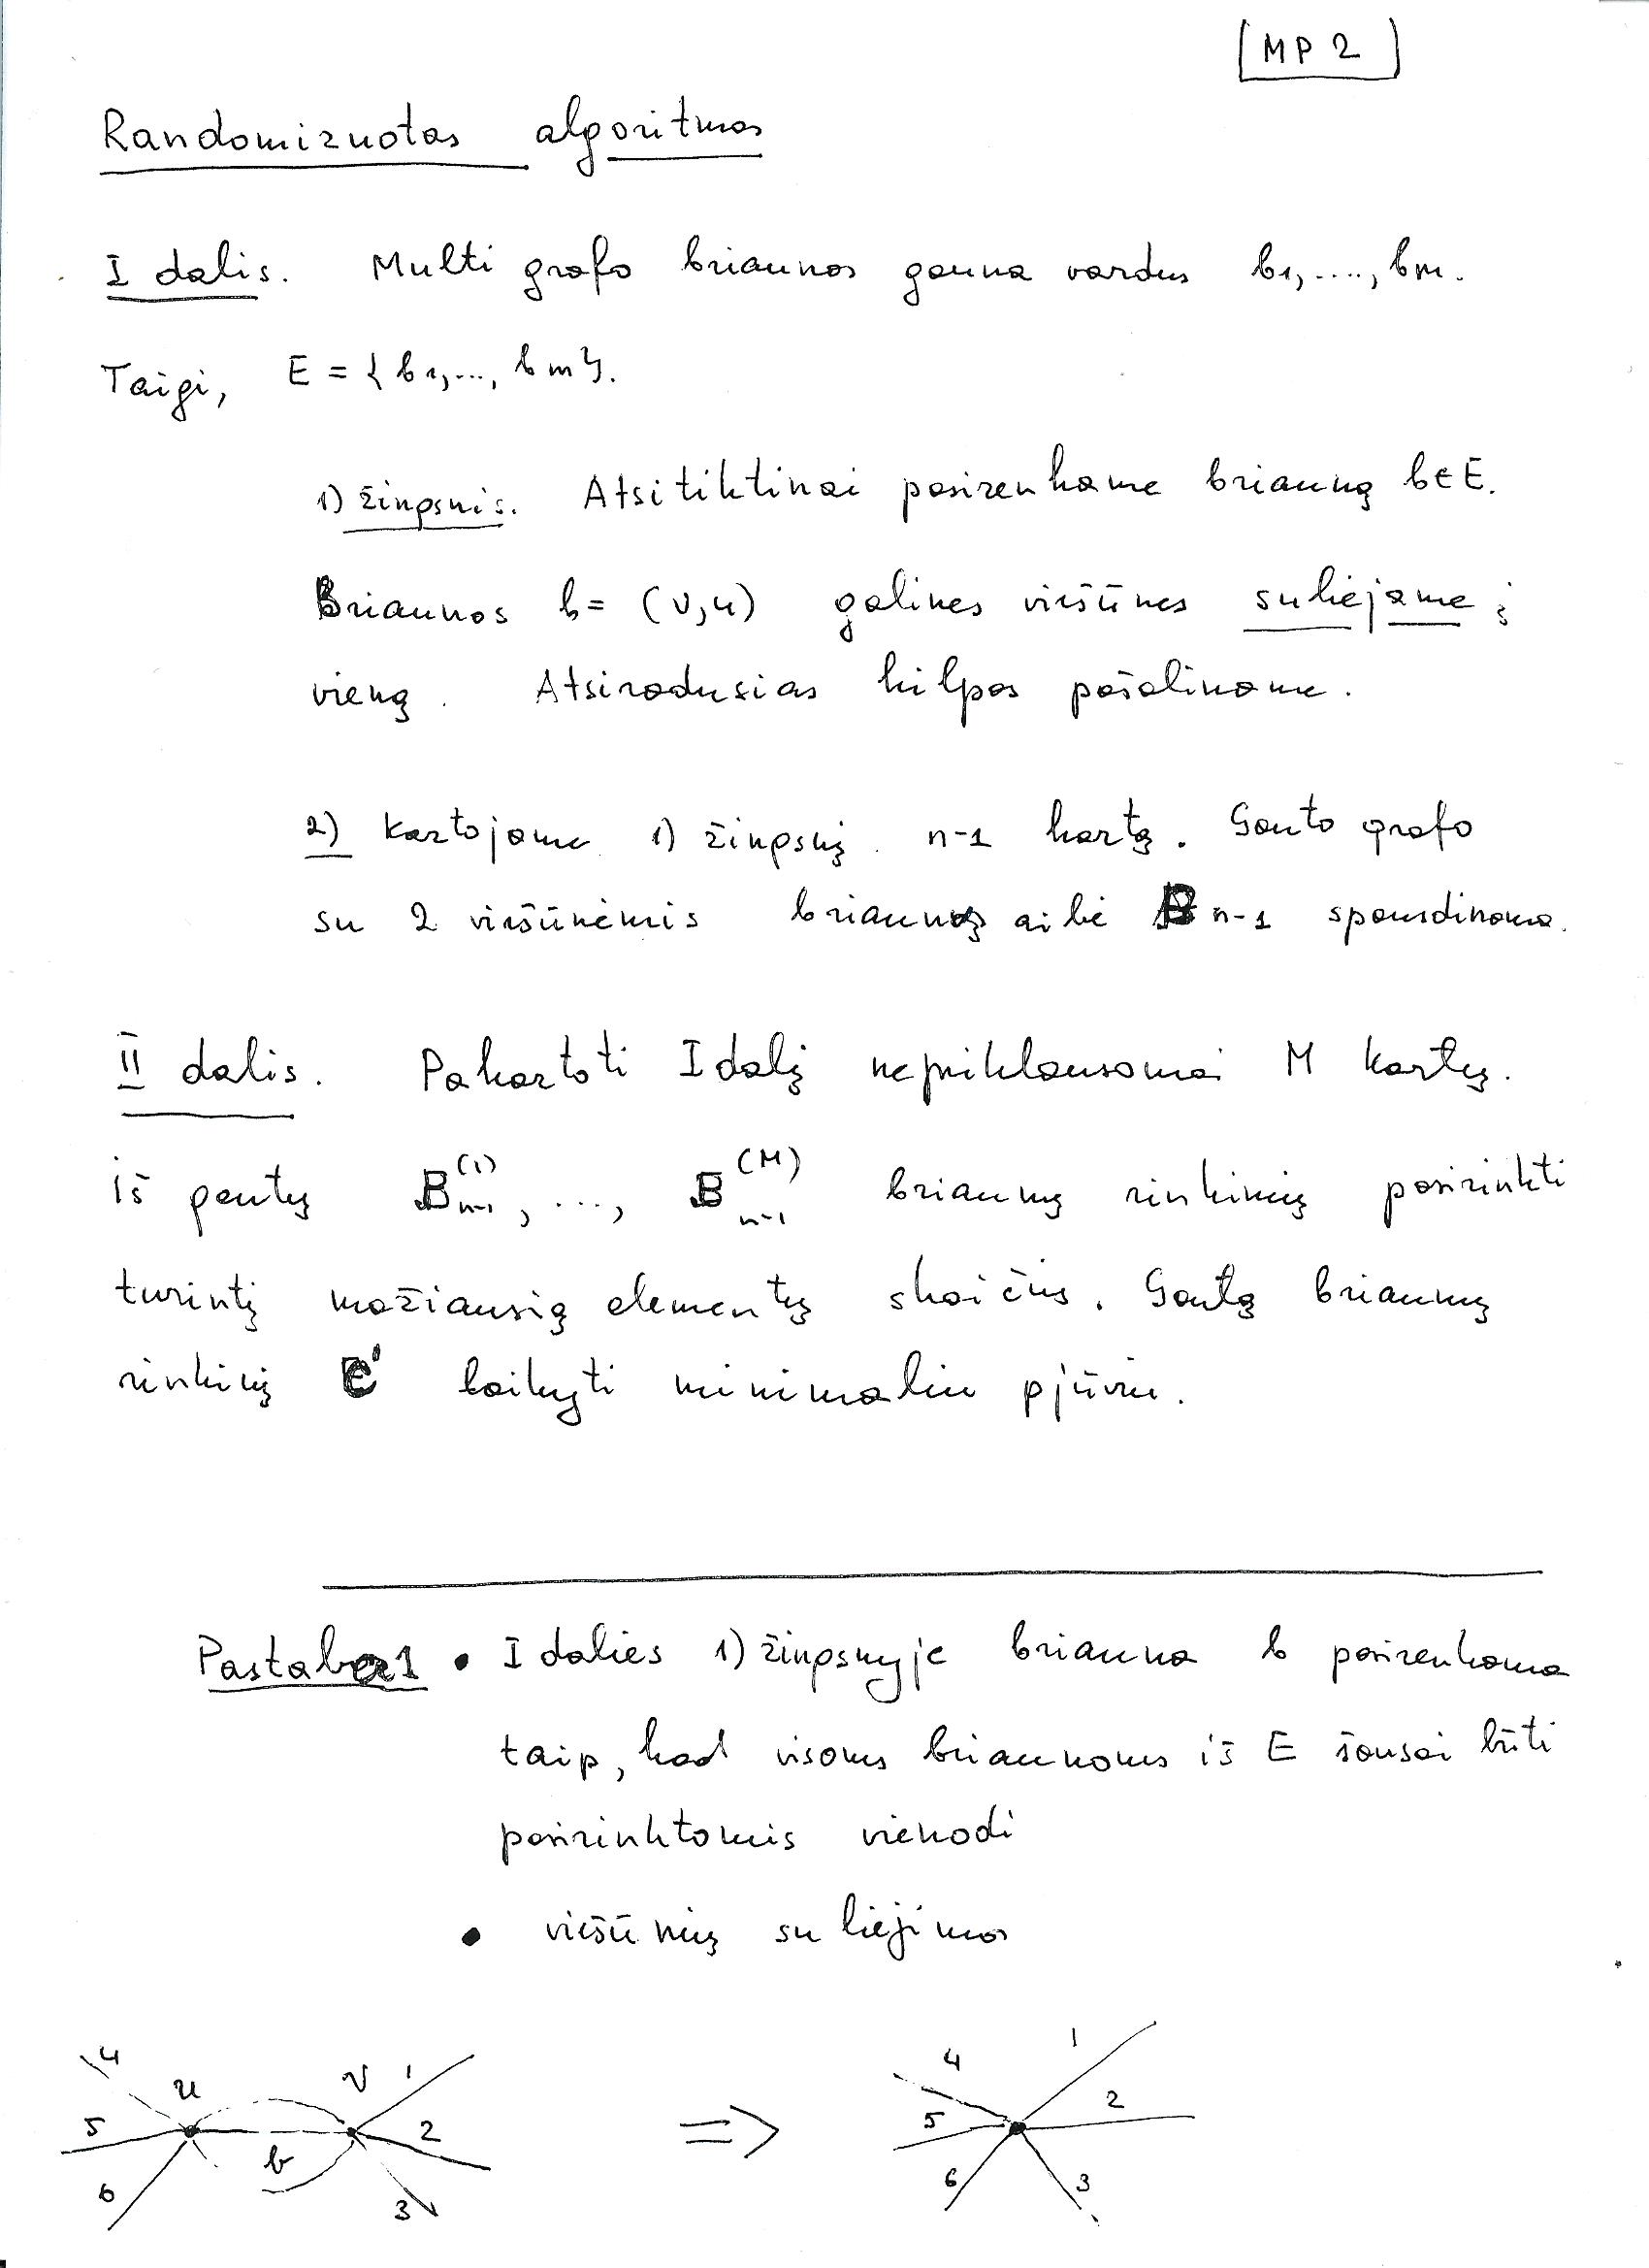 [MP 2]
Randomizuotas algoritmas
I dalis. Multi grafo briaunos gauna vardus b1,....,bm.
Taigi, E = {b1,..., bm}.
1) žingsnis. Atsitiktinai pasirenkame briauną b∈E.
Briaunos b= (v,u) galines viršūnes suliejame į
vieną. Atsiradusias kilpas pašaliname.
2) Kartojame 1) žingsnį n-1 kartą. Gauto grafo
su 2 viršūnėmis briaunų aibė Bn-1 spausdinama.
II dalis. Pakartoti I dalį nepriklausomai M kartų.
iš gautų B(1)n-1, ..., B(M)n-1 briaunų rinkinių pasirinkti
turintį mažiausią elementų skaičių. Gautą briaunų
rinkinį C' laikyti minimaliu pjūviu.
Pastaba1 • I dalies 1) žingsnyje briauna b pasirenkama
taip, kad visoms briaunoms iš E šansai būti
pasirinktomis vienodi
• viršūnių suliejimas
4 u v 1
5 b 2
6 3
=>
4 1
5 2
6 3